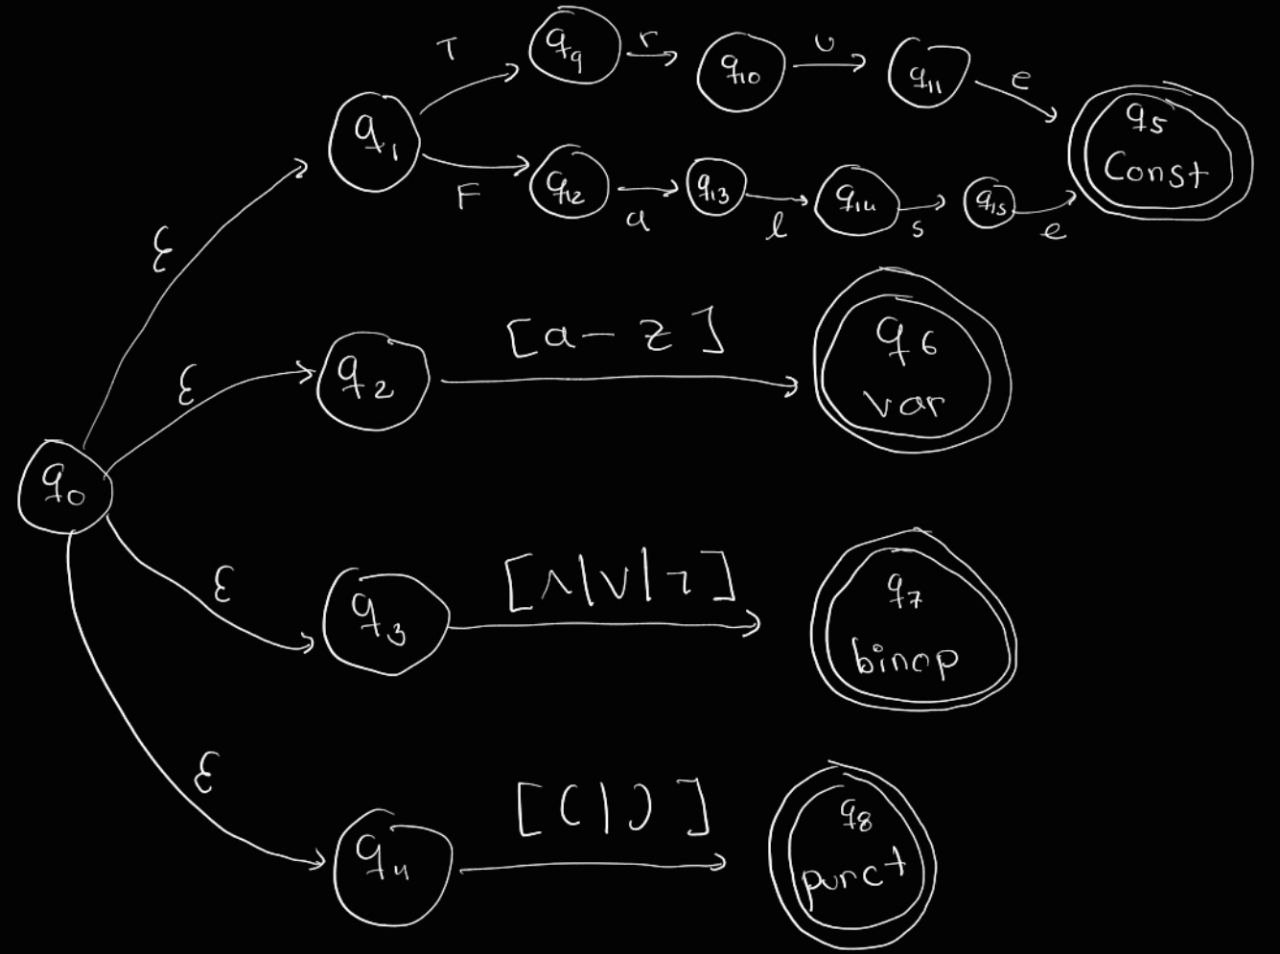 T
q9
r
q10
u
q11
e
q5
Const
q1
F
q12
a
q13
l
q14
s
q15
e
ε
q2
[a-z]
q6
var
ε
q0
ε
q3
[∧|∨|¬]
q7
binop
ε
q4
[(|)]
q8
punct